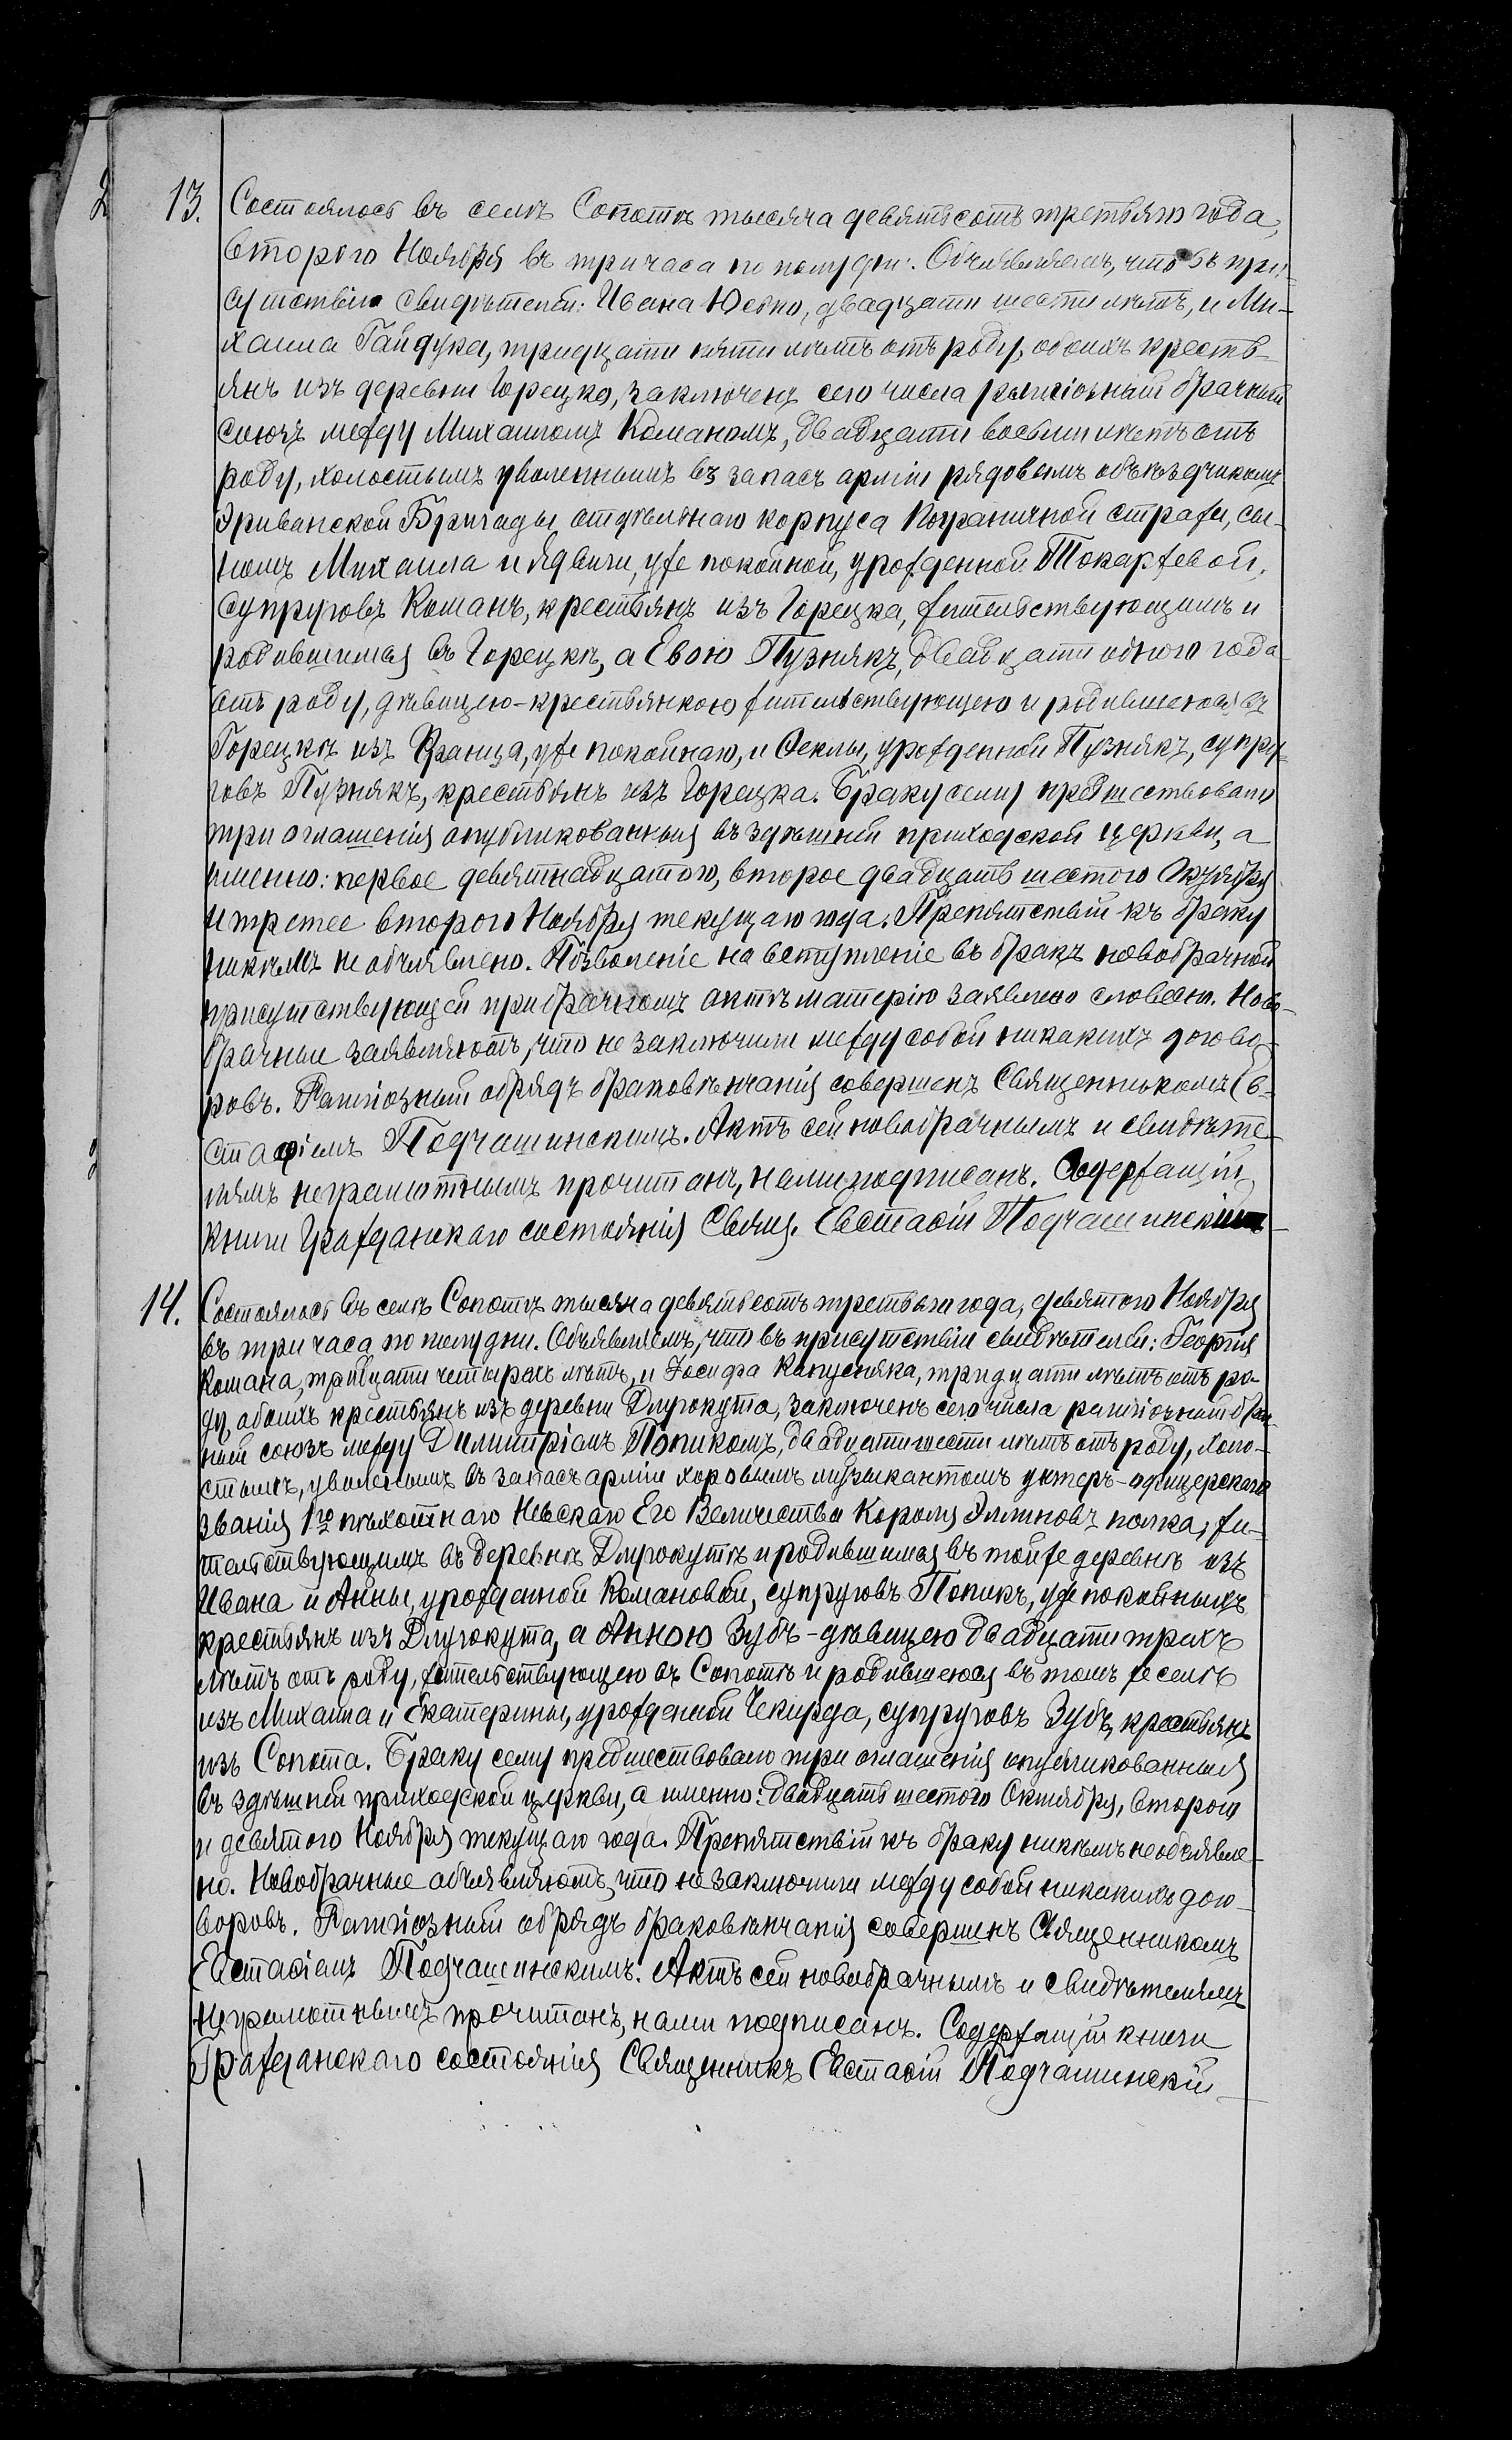 2
13. Состоялось въ селѣ Сопотѣ тысяча девятьсотъ третьяго года,
второго Ноября въ три часа по полудни. Объявляемъ, что въ при-
сутствіи свидѣтелей: Ивана Юсько, двадцати шести лѣтъ, и Ми-
хаила Гайдука, тридцати пяти лѣтъ отъ роду, обоихъ кресть-
янъ изъ деревни Горецко, заключенъ сего числа религіозный брачный
союзъ между Михаиломъ Команомъ, двадцати восьми лѣтъ отъ
роду, холостымъ уволеннымъ въ запасъ арміи рядовымъ объѣздчикомъ
Эриванской Бригады отдѣльнаго корпуса Пограничной стражи, сы-
номъ Михаила и Ядвиги, уже покойной, урожденной Токаржевой,
супруговъ Команъ, крестьянъ изъ Горецка, жительствующимъ и
родившимся въ Горецкѣ, а Евою Пузнякъ, двадцати одного года
отъ роду, дѣвицею-крестьянкою жительствующею и родившеюся въ
Горецкѣ изъ Франца, уже покойнаго, и Ѳеклы, урожденной Пузнякъ, супру-
говъ Пузнякъ, крестьянъ изъ Горецка. Браку сему предшествовало
три оглашенія опубликованныя въ здѣшней приходской церкви, а
именно: первое девятнадцатого, второе двадцать шестого Октября
и третее второго Ноября текущаго года. Препятствій къ браку
никѣмъ не объявлено. Позволеніе на вступленіе въ бракъ новобрачной
присутствующей при брачномъ актѣ матерію заявлено словесно. Ново-
брачные заявляютъ, что не заключили между собой никакихъ догово-
ровъ. Религіозный обрядъ браковѣнчанія совершенъ Священникомъ Ев-
стафіемъ Подчашинскимъ. Актъ сей новобрачнымъ и свидѣте-
лямъ неграмотнымъ прочитанъ, нами подписанъ. Содержащій
книги Гражданскаго состоянія Свящ. Евстаѳій Подчашинскій
14. Состоялось въ селѣ Сопотѣ тысяча девятьсотъ третьяго года, девятого Ноября
въ три часа по полудни. Объявляемъ, что въ присутствіи свидѣтелей: Георгія
Комана, тридцати четырехъ лѣтъ, и Іосифа Капусняка, тридцати лѣтъ отъ ро-
ду, обоихъ крестьянъ изъ деревни Длугокута, заключенъ сего числа религіозный брач-
ный союзъ между Димитріемъ Попикомъ, двадцати шести лѣтъ отъ роду, холо-
стымъ, уволеннымъ въ запасъ арміи хоровымъ музыкантомъ унтеръ-офицерскаго
званія 1го пѣхотнаго Невскаго Его Величества Короля Эллиновъ полка, жи-
тельствующимъ въ деревнѣ Длугокутѣ и родившимся въ той же деревнѣ изъ
Ивана и Анны, урожденной Комановой, супруговъ Попикъ, уже покойныхъ
крестьянъ изъ Длугокута, а Анною Зубъ - дѣвицею двадцати трехъ
лѣтъ отъ роду, жительствующею въ Сопотѣ и родившеюся въ томъ же селѣ
изъ Михаила и Екатерины, урожденной Чекирда, супруговъ Зубъ, крестьянъ
изъ Сопота. Браку сему предшествовало три оглашенія опубликованныя
въ здѣшней приходской церкви, а именно: двадцать шестого Октября, второго
и девятого Ноября текущаго года. Препятствій къ браку никѣмъ не объявле-
но. Новобрачные объявляютъ, что не заключили между собой никакихъ дого-
воровъ. Религіозный обрядъ браковѣнчанія совершенъ Священникомъ
Евстаѳіемъ Подчашинскимъ. Актъ сей новобрачнымъ и свидѣтелямъ
неграмотнымъ прочитанъ, нами подписанъ. Содержащій книги
Гражданскаго состоянія Священникъ Евстаѳій Подчашинскій